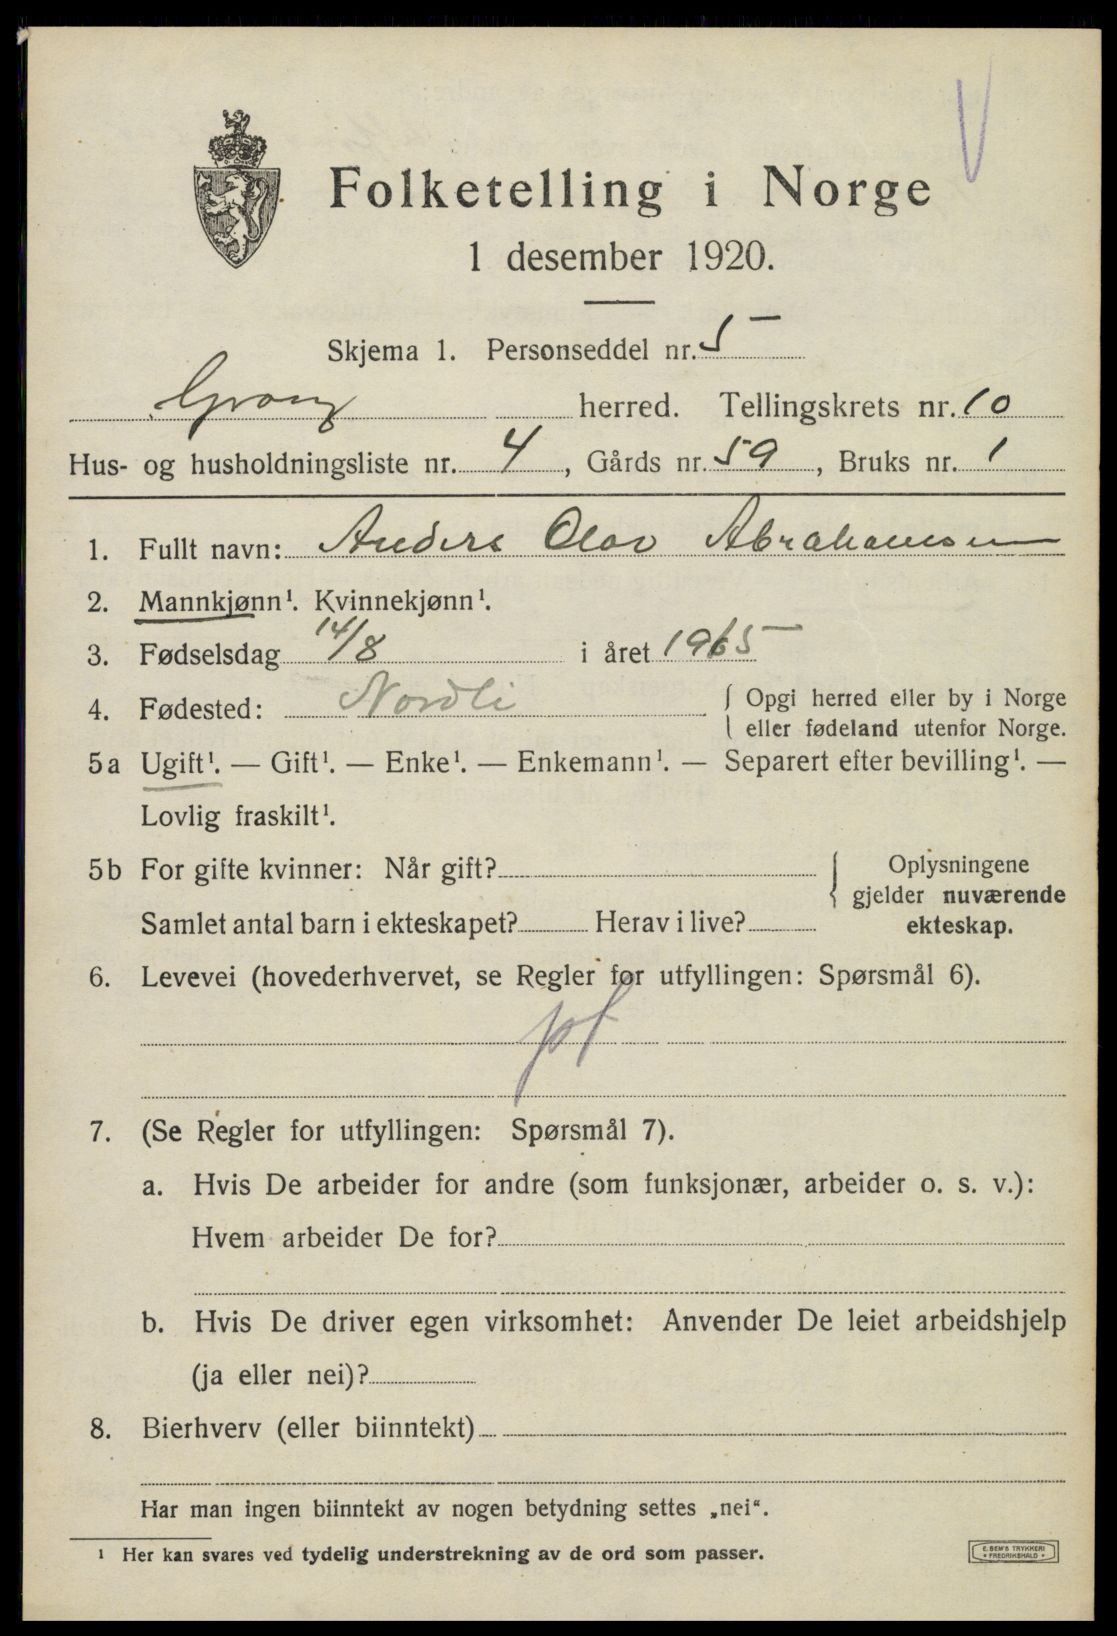 Folketelling i Norge
1 desember 1920.
Skjema 1. Personseddel nr. 5
Grong herred. Tellingskrets nr. 10
Hus- og husholdningsliste nr. 4, Gårds nr. 59, Bruks nr. 1
1. Fullt navn: Anders Olav Abrahamsen
2. Mannkjønn¹. Kvinnekjønn¹.
3. Fødselsdag 14/8 i året 1965
4. Fødested: Nordli { Opgi herred eller by i Norge
eller fødeland utenfor Norge.
5a Ugift¹. — Gift¹. — Enke¹. — Enkemann¹. — Separert efter bevilling¹. —
Lovlig fraskilt¹.
5b For gifte kvinner: Når gift? { Oplysningene
gjelder nuværende
Samlet antal barn i ekteskapet? Herav i live? ekteskap.
6. Levevei (hovederhvervet, se Regler for utfyllingen: Spørsmål 6).
pf
7. (Se Regler for utfyllingen: Spørsmål 7).
a. Hvis De arbeider for andre (som funksjonær, arbeider o. s. v.):
Hvem arbeider De for?
b. Hvis De driver egen virksomhet: Anvender De leiet arbeidshjelp
(ja eller nei)?
8. Bierhverv (eller biinntekt)
Har man ingen biinntekt av nogen betydning settes „nei“.
¹ Her kan svares ved tydelig understrekning av de ord som passer.
E. SEM'S TRYKKERI
• FREDRIKSHALD •